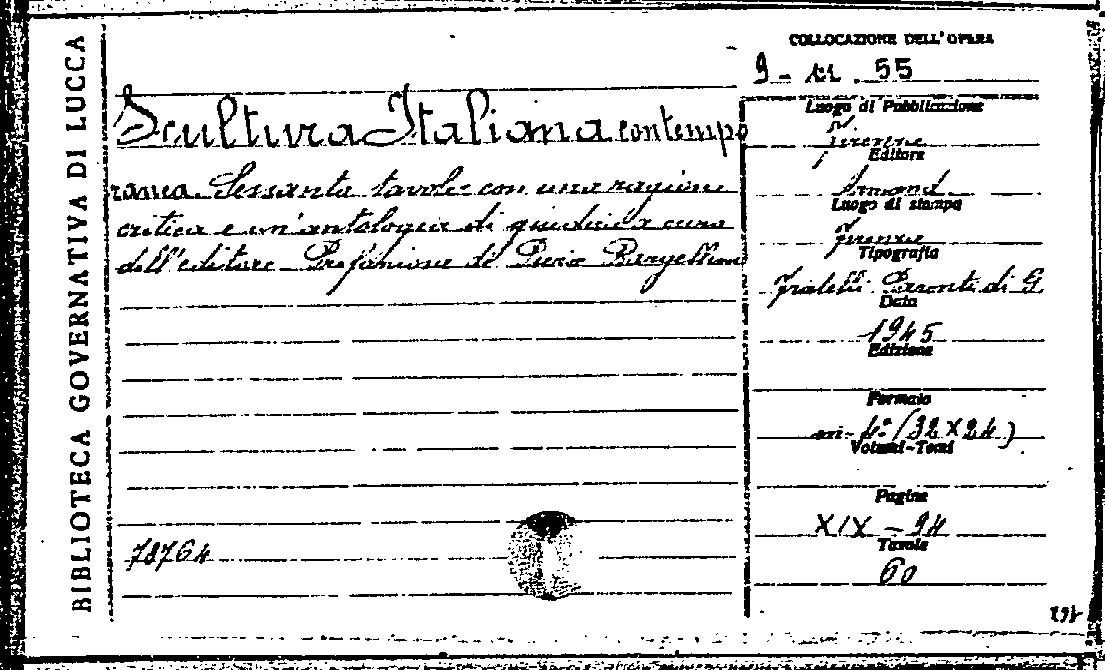 BIBLIOTECA GOVERNATIVA DI LUCCA
COLLOCAZIONE DELL'OPERA
9 - . 55
Scultura Italiana contempo
ranea. Sessanta tavole con una ragione
critica e un'antologia di giudizi a cura
dell'editore - Prefazione di Piero Bargellini
78764
Luogo di Pubblicazione
Firenze
Editore
Arnaud
Luogo di stampa
Firenze
Tipografia
Fratelli di G.
Data
1945
Edizione
Formato
in - 4º (32 X 24)
Volumi-Tomi
Pagine
XIX - 94
Tavole
60